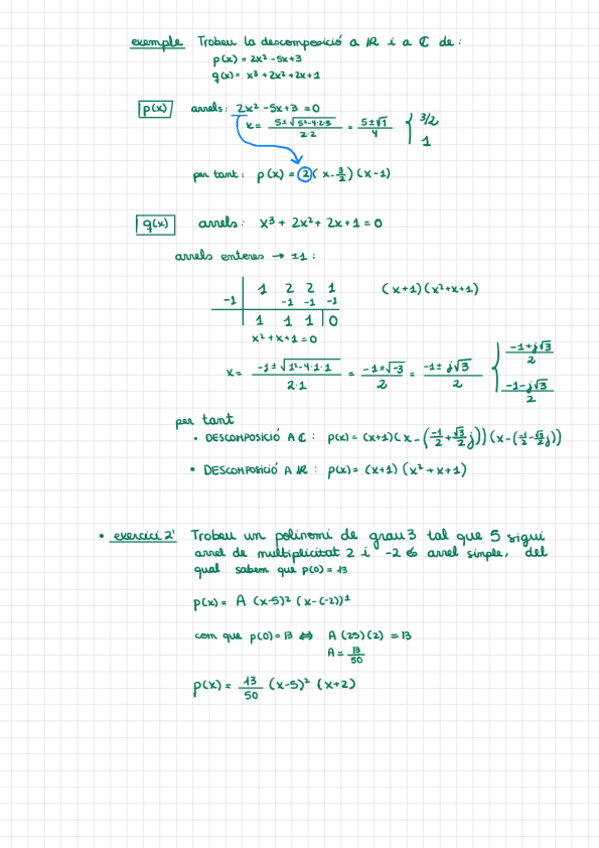 exemple Trobeu la descomposició a ℝ i a ℂ de:
p(x) = 2x² -5x+3
q(x) = x³ + 2x² + 2x + 1
p(x) arrels: 2x² -5x+3 = 0
x = (5±√(5²-4·2·3))/(2·2) = (5±√1)/4 { 3/2
1
per tant: p(x) = 2(x-3/2)(x-1)
q(x) arrels: x³ + 2x² + 2x + 1 = 0
arrels enteres → ±1:
1 2 2 1 (x+1)(x²+x+1)
-1 -1 -1 -1
1 1 1 | 0
x² + x + 1 = 0
x = (-1±√(1²-4·1·1))/(2·1) = (-1±√-3)/2 = (-1±j√3)/2 { (-1+j√3)/2
(-1-j√3)/2
per tant
• DESCOMPOSICIÓ A ℂ: p(x) = (x+1)(x-(-1/2+√3/2 j))(x-(-1/2-√3/2 j))
• DESCOMPOSICIÓ A ℝ: p(x) = (x+1)(x²+x+1)
• exercici 2' Trobeu un polinomi de grau 3 tal que 5 sigui
arrel de multiplicitat 2 i -2 és arrel simple, del
qual sabem que p(0) = 13
p(x) = A (x-5)² (x-(-2))¹
com que p(0) = 13 ⇔ A (25)(2) = 13
A = 13/50
p(x) = 13/50 (x-5)² (x+2)